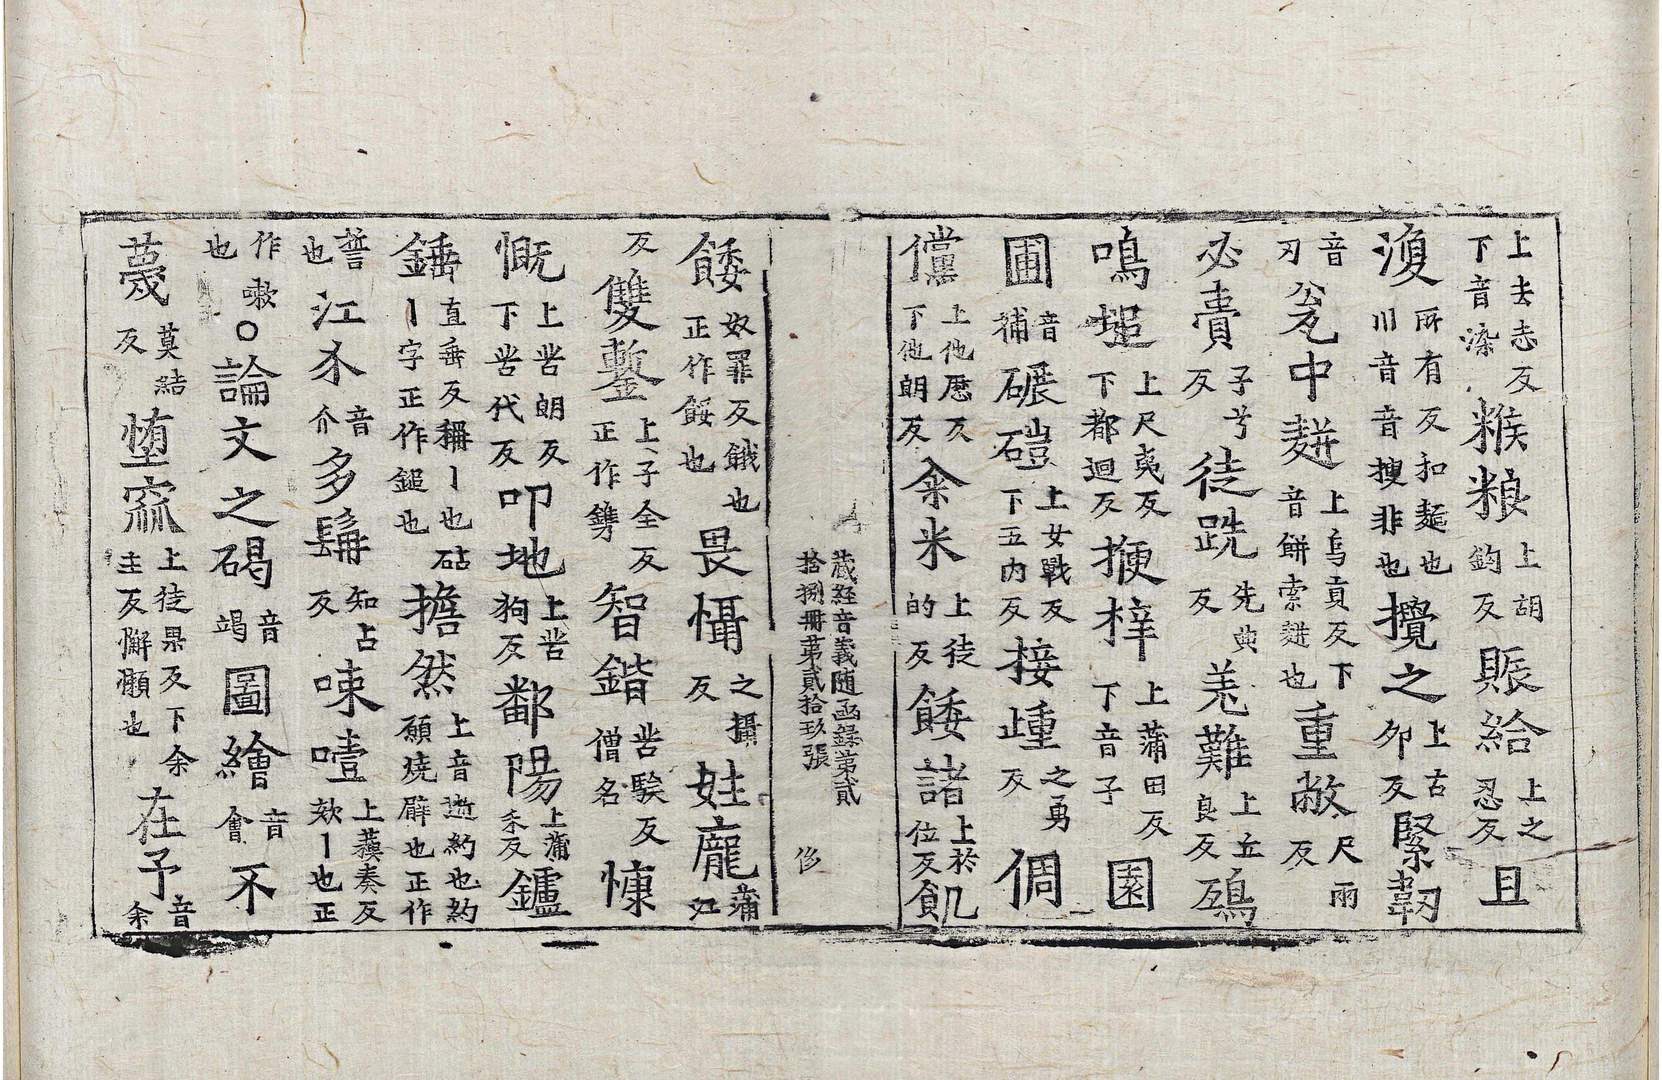 上去志反下音滦糇粮上胡鈎反賑給上之忍反且
溲所有反和麺也川音音搜非也攪之上古夘反緊韌
音刃瓮中麨上烏貢反下音餅索麨也重敞尺雨反
必賷子兮反徒跣先典反羌難上丘良反鵶
鳴塠上尺夷反下都迴反挭梓上蒲田反下音子園
圃音補碾磑上女戰反下五内反接踵之勇反倜
儻上他歷反下他朗反籴米上徒的反餧諸上於位反飢
藏經音義随函録第貳拾捌冊第貳拾玖張 侈
餧奴罪反餓也正作餒也畏懾之攝反姓龐蒲江
反雙鏨上子全反正作鐫智鍇苦駭反僧名慷
慨上苦朗反下苦代反叩地上苦狗反鄱陽上蒲禾反鑪
錘直垂反稱丨也砧丨字正作鎚也擔然上音逝約也約願燒臂也正作
誓也江夰音介多髯知占反㖒噎上蘓奏反欬丨也正
作嗽也〇論文之碣音竭圖繪音會不
蔑莫結反墮窳上徒果反下余主反懈懶也在予音余